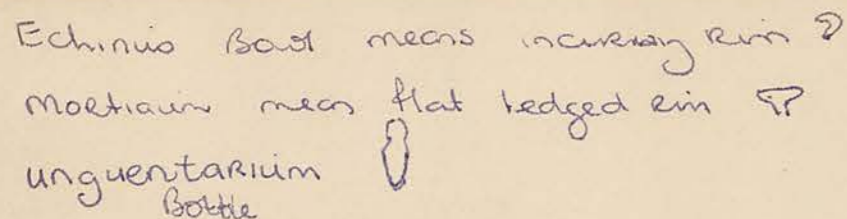 Echinus Bowl means incurving Rim
Mortiaum means flat ledged rim
unguentarium
Bottle